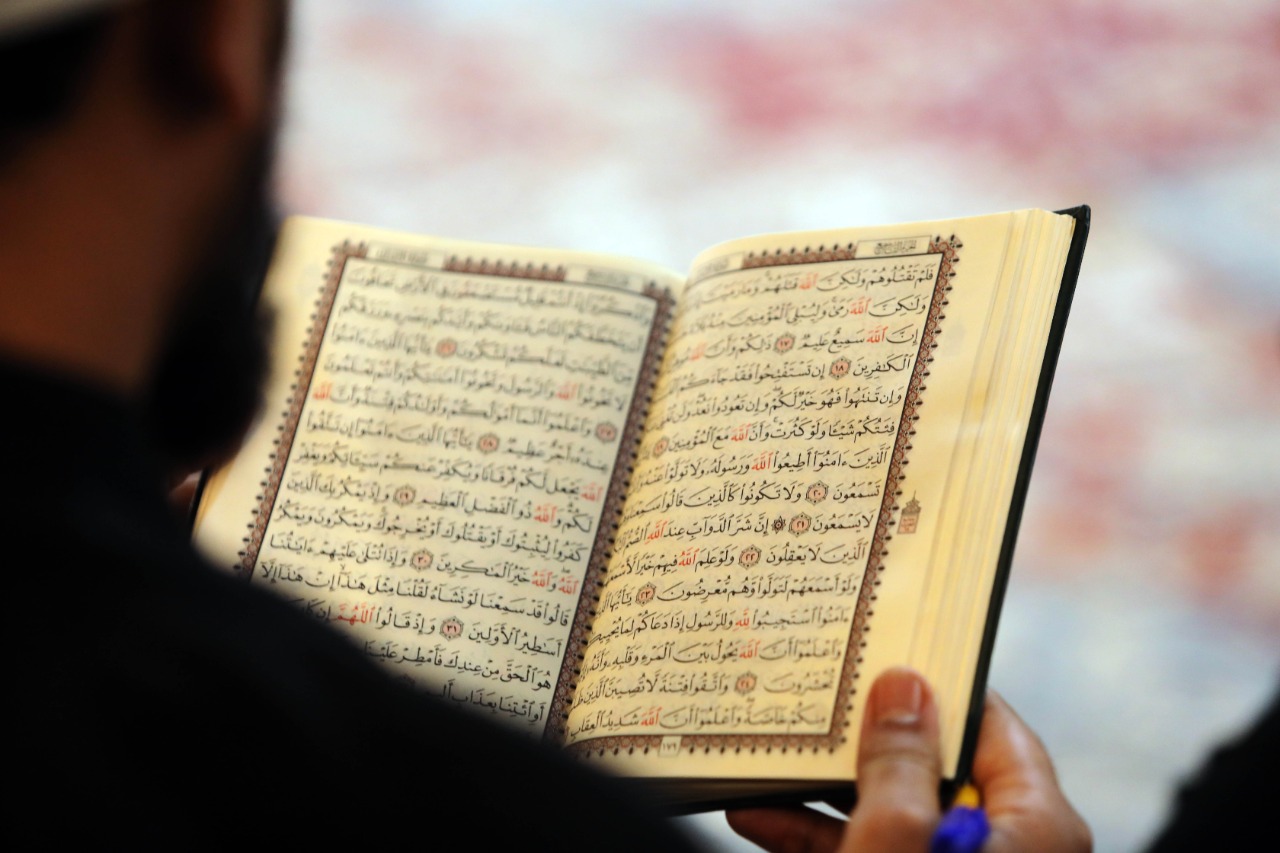 فَلَمْ تَقْتُلُوهُمْ وَلَٰكِنَّ ٱللَّهَ قَتَلَهُمْ وَمَا رَمَيْتَ
وَلَٰكِنَّ ٱللَّهَ رَمَىٰ وَلِيُبْلِىَ ٱلْمُؤْمِنِينَ مِنْهُ
إِنَّ ٱللَّهَ سَمِيعٌ عَلِيمٌ ١٧ ذَٰلِكُمْ وَأَنَّ ٱللَّهَ
ٱلْكَٰفِرِينَ ١٨ إِن تَسْتَفْتِحُوا۟ فَقَدْ جَآءَكُمُ
وَإِن تَنتَهُوا۟ فَهُوَ خَيْرٌ لَّكُمْ وَإِن تَعُودُوا۟ نَعُدْ وَلَن
فِئَتُكُمْ شَيْـًٔا وَلَوْ كَثُرَتْ وَأَنَّ ٱللَّهَ مَعَ ٱلْمُؤْمِنِينَ ١٩
ٱلَّذِينَ ءَامَنُوٓا۟ أَطِيعُوا۟ ٱللَّهَ وَرَسُولَهُۥ وَلَا تَوَلَّوْا۟ عَنْهُ
تَسْمَعُونَ ٢٠ وَلَا تَكُونُوا۟ كَٱلَّذِينَ قَالُوا۟ سَمِعْنَا
لَا يَسْمَعُونَ ٢١ ۞ إِنَّ شَرَّ ٱلدَّوَآبِّ عِندَ ٱللَّهِ ٱلصُّمُّ
ٱلَّذِينَ لَا يَعْقِلُونَ ٢٢ وَلَوْ عَلِمَ ٱللَّهُ فِيهِمْ خَيْرًا
وَلَوْ أَسْمَعَهُمْ لَتَوَلَّوا۟ وَّهُم مُّعْرِضُونَ ٢٣ يَٰٓأَيُّهَا
ءَامَنُوا۟ ٱسْتَجِيبُوا۟ لِلَّهِ وَلِلرَّسُولِ إِذَا دَعَاكُمْ لِمَا يُحْيِيكُمْ
وَٱعْلَمُوٓا۟ أَنَّ ٱللَّهَ يَحُولُ بَيْنَ ٱلْمَرْءِ وَقَلْبِهِۦ وَأَنَّهُۥٓ
تُحْشَرُونَ ٢٤ وَٱتَّقُوا۟ فِتْنَةً لَّا تُصِيبَنَّ ٱلَّذِينَ
مِنكُمْ خَآصَّةً وَٱعْلَمُوٓا۟ أَنَّ ٱللَّهَ شَدِيدُ ٱلْعِقَابِ
١٧٩
مِّنَ ٱلطَّيِّبَٰتِ لَعَلَّكُمْ تَشْكُرُونَ ٢٦ يَٰٓأَيُّهَا ٱلَّذِينَ ءَامَنُوا۟
لَا تَخُونُوا۟ ٱللَّهَ وَٱلرَّسُولَ وَتَخُونُوٓا۟ أَمَٰنَٰتِكُمْ وَأَنتُمْ تَعْلَمُونَ
٢٧ وَٱعْلَمُوٓا۟ أَنَّمَآ أَمْوَٰلُكُمْ وَأَوْلَٰدُكُمْ فِتْنَةٌ وَأَنَّ ٱللَّهَ
عِندَهُۥٓ أَجْرٌ عَظِيمٌ ٢٨ يَٰٓأَيُّهَا ٱلَّذِينَ ءَامَنُوٓا۟ إِن تَتَّقُوا۟
ٱللَّهَ يَجْعَل لَّكُمْ فُرْقَانًا وَيُكَفِّرْ عَنكُمْ سَيِّـَٔاتِكُمْ وَيَغْفِرْ
لَكُمْ وَٱللَّهُ ذُو ٱلْفَضْلِ ٱلْعَظِيمِ ٢٩ وَإِذْ يَمْكُرُ بِكَ ٱلَّذِينَ
كَفَرُوا۟ لِيُثْبِتُوكَ أَوْ يَقْتُلُوكَ أَوْ يُخْرِجُوكَ وَيَمْكُرُونَ وَيَمْكُرُ
ٱللَّهُ وَٱللَّهُ خَيْرُ ٱلْمَٰكِرِينَ ٣٠ وَإِذَا تُتْلَىٰ عَلَيْهِمْ ءَايَٰتُنَا
قَالُوا۟ قَدْ سَمِعْنَا لَوْ نَشَآءُ لَقُلْنَا مِثْلَ هَٰذَآ إِنْ هَٰذَآ إِلَّآ
أَسَٰطِيرُ ٱلْأَوَّلِينَ ٣١ وَإِذْ قَالُوا۟ ٱللَّهُمَّ إِن كَانَ
هُوَ ٱلْحَقَّ مِنْ عِندِكَ فَأَمْطِرْ عَلَيْنَا
أَوِ ٱئْتِنَا بِعَذَابٍ